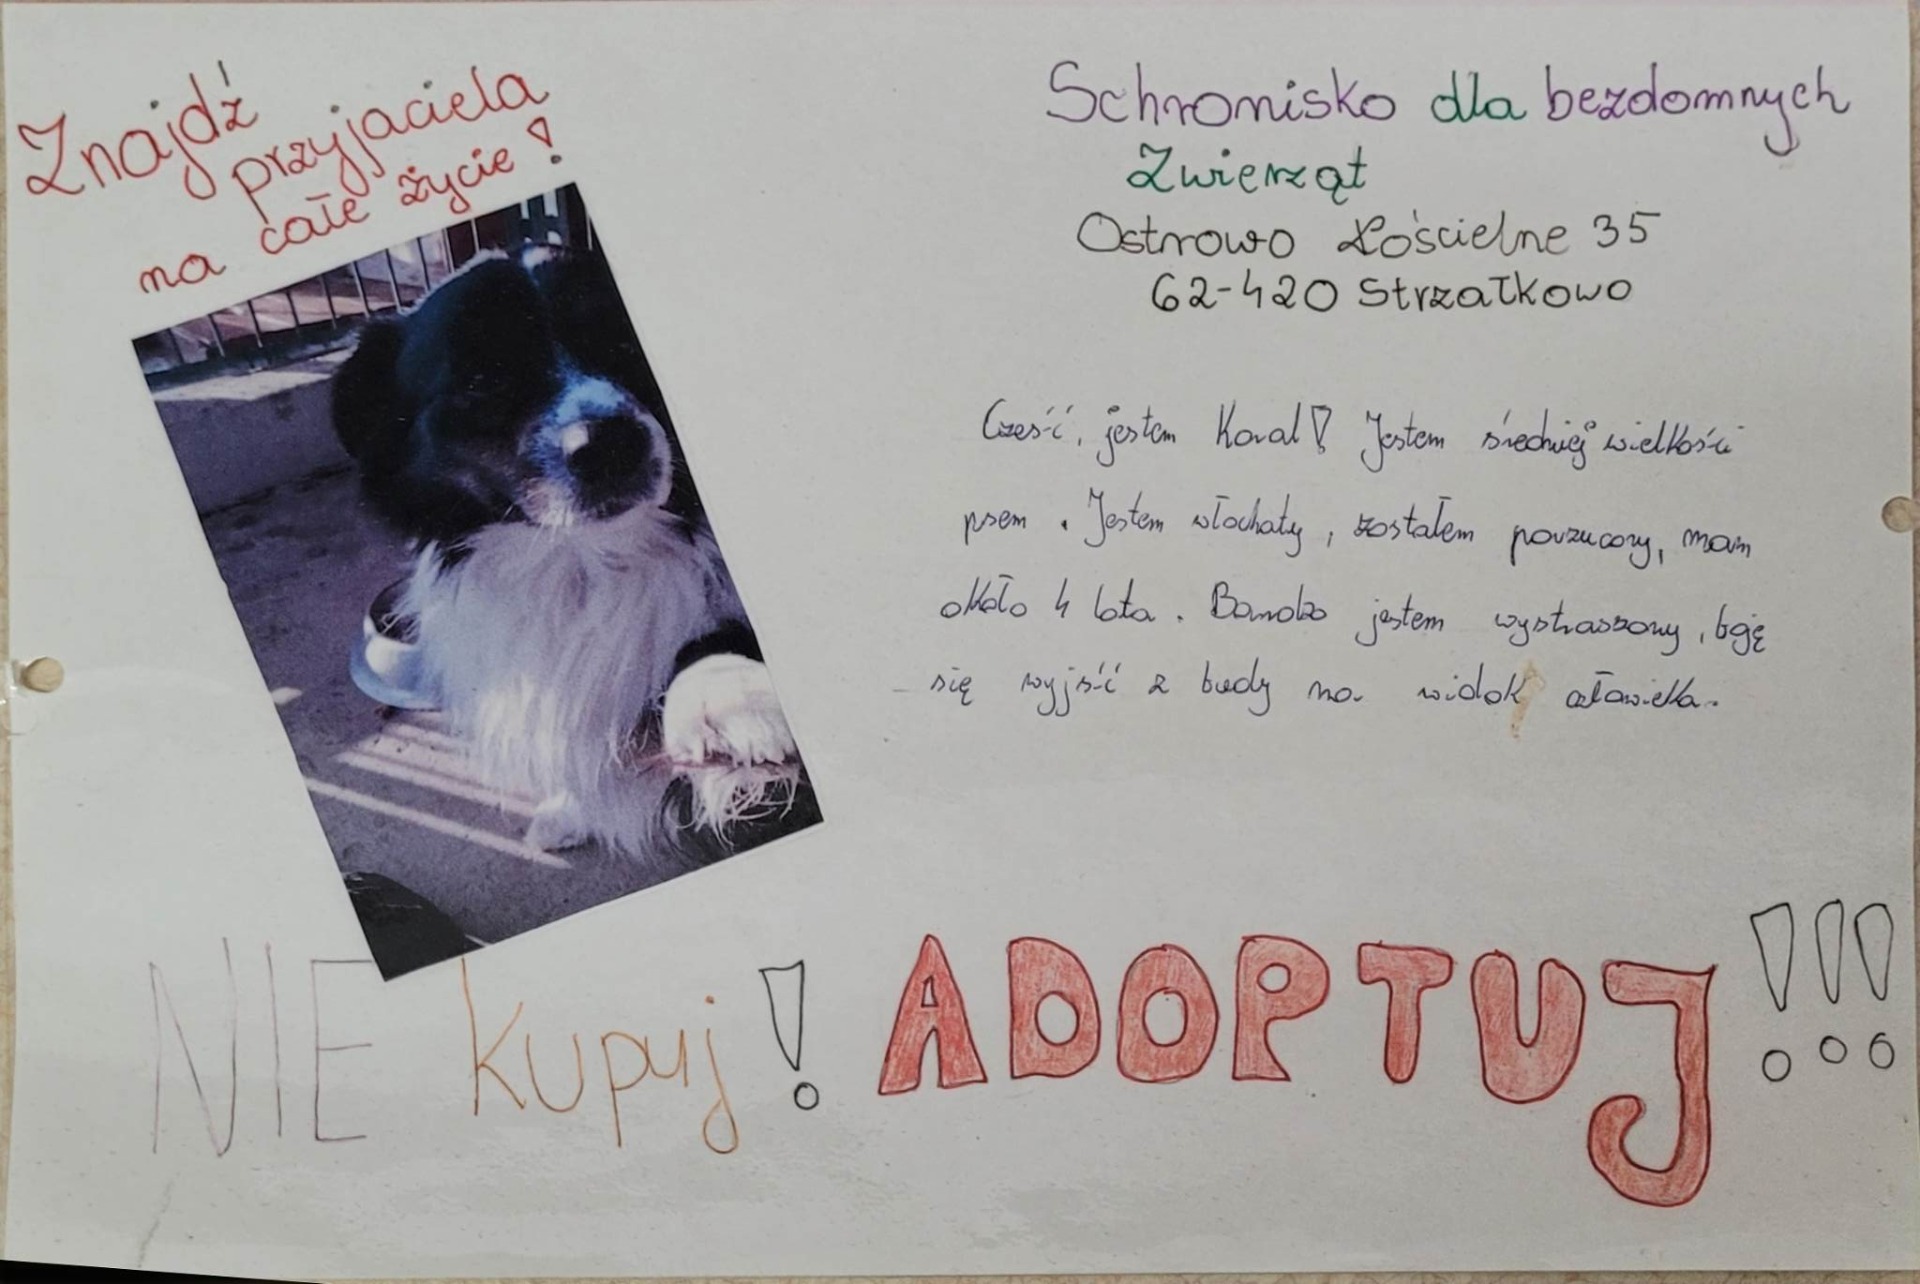 Znajdź
przyjaciela
na całe życie!
Schronisko dla bezdomnych
Zwierząt
Ostrowo Kościelne 35
62-420 Strzałkowo
Cześć, jestem Koral! Jestem średniej wielkości
psem. Jestem włochaty, zostałem porzucony, mam
około 4 lata. Bardzo jestem wystraszony, boję
się wyjść z budy na widok człowieka.
NIE kupuj! ADOPTUJ!!!